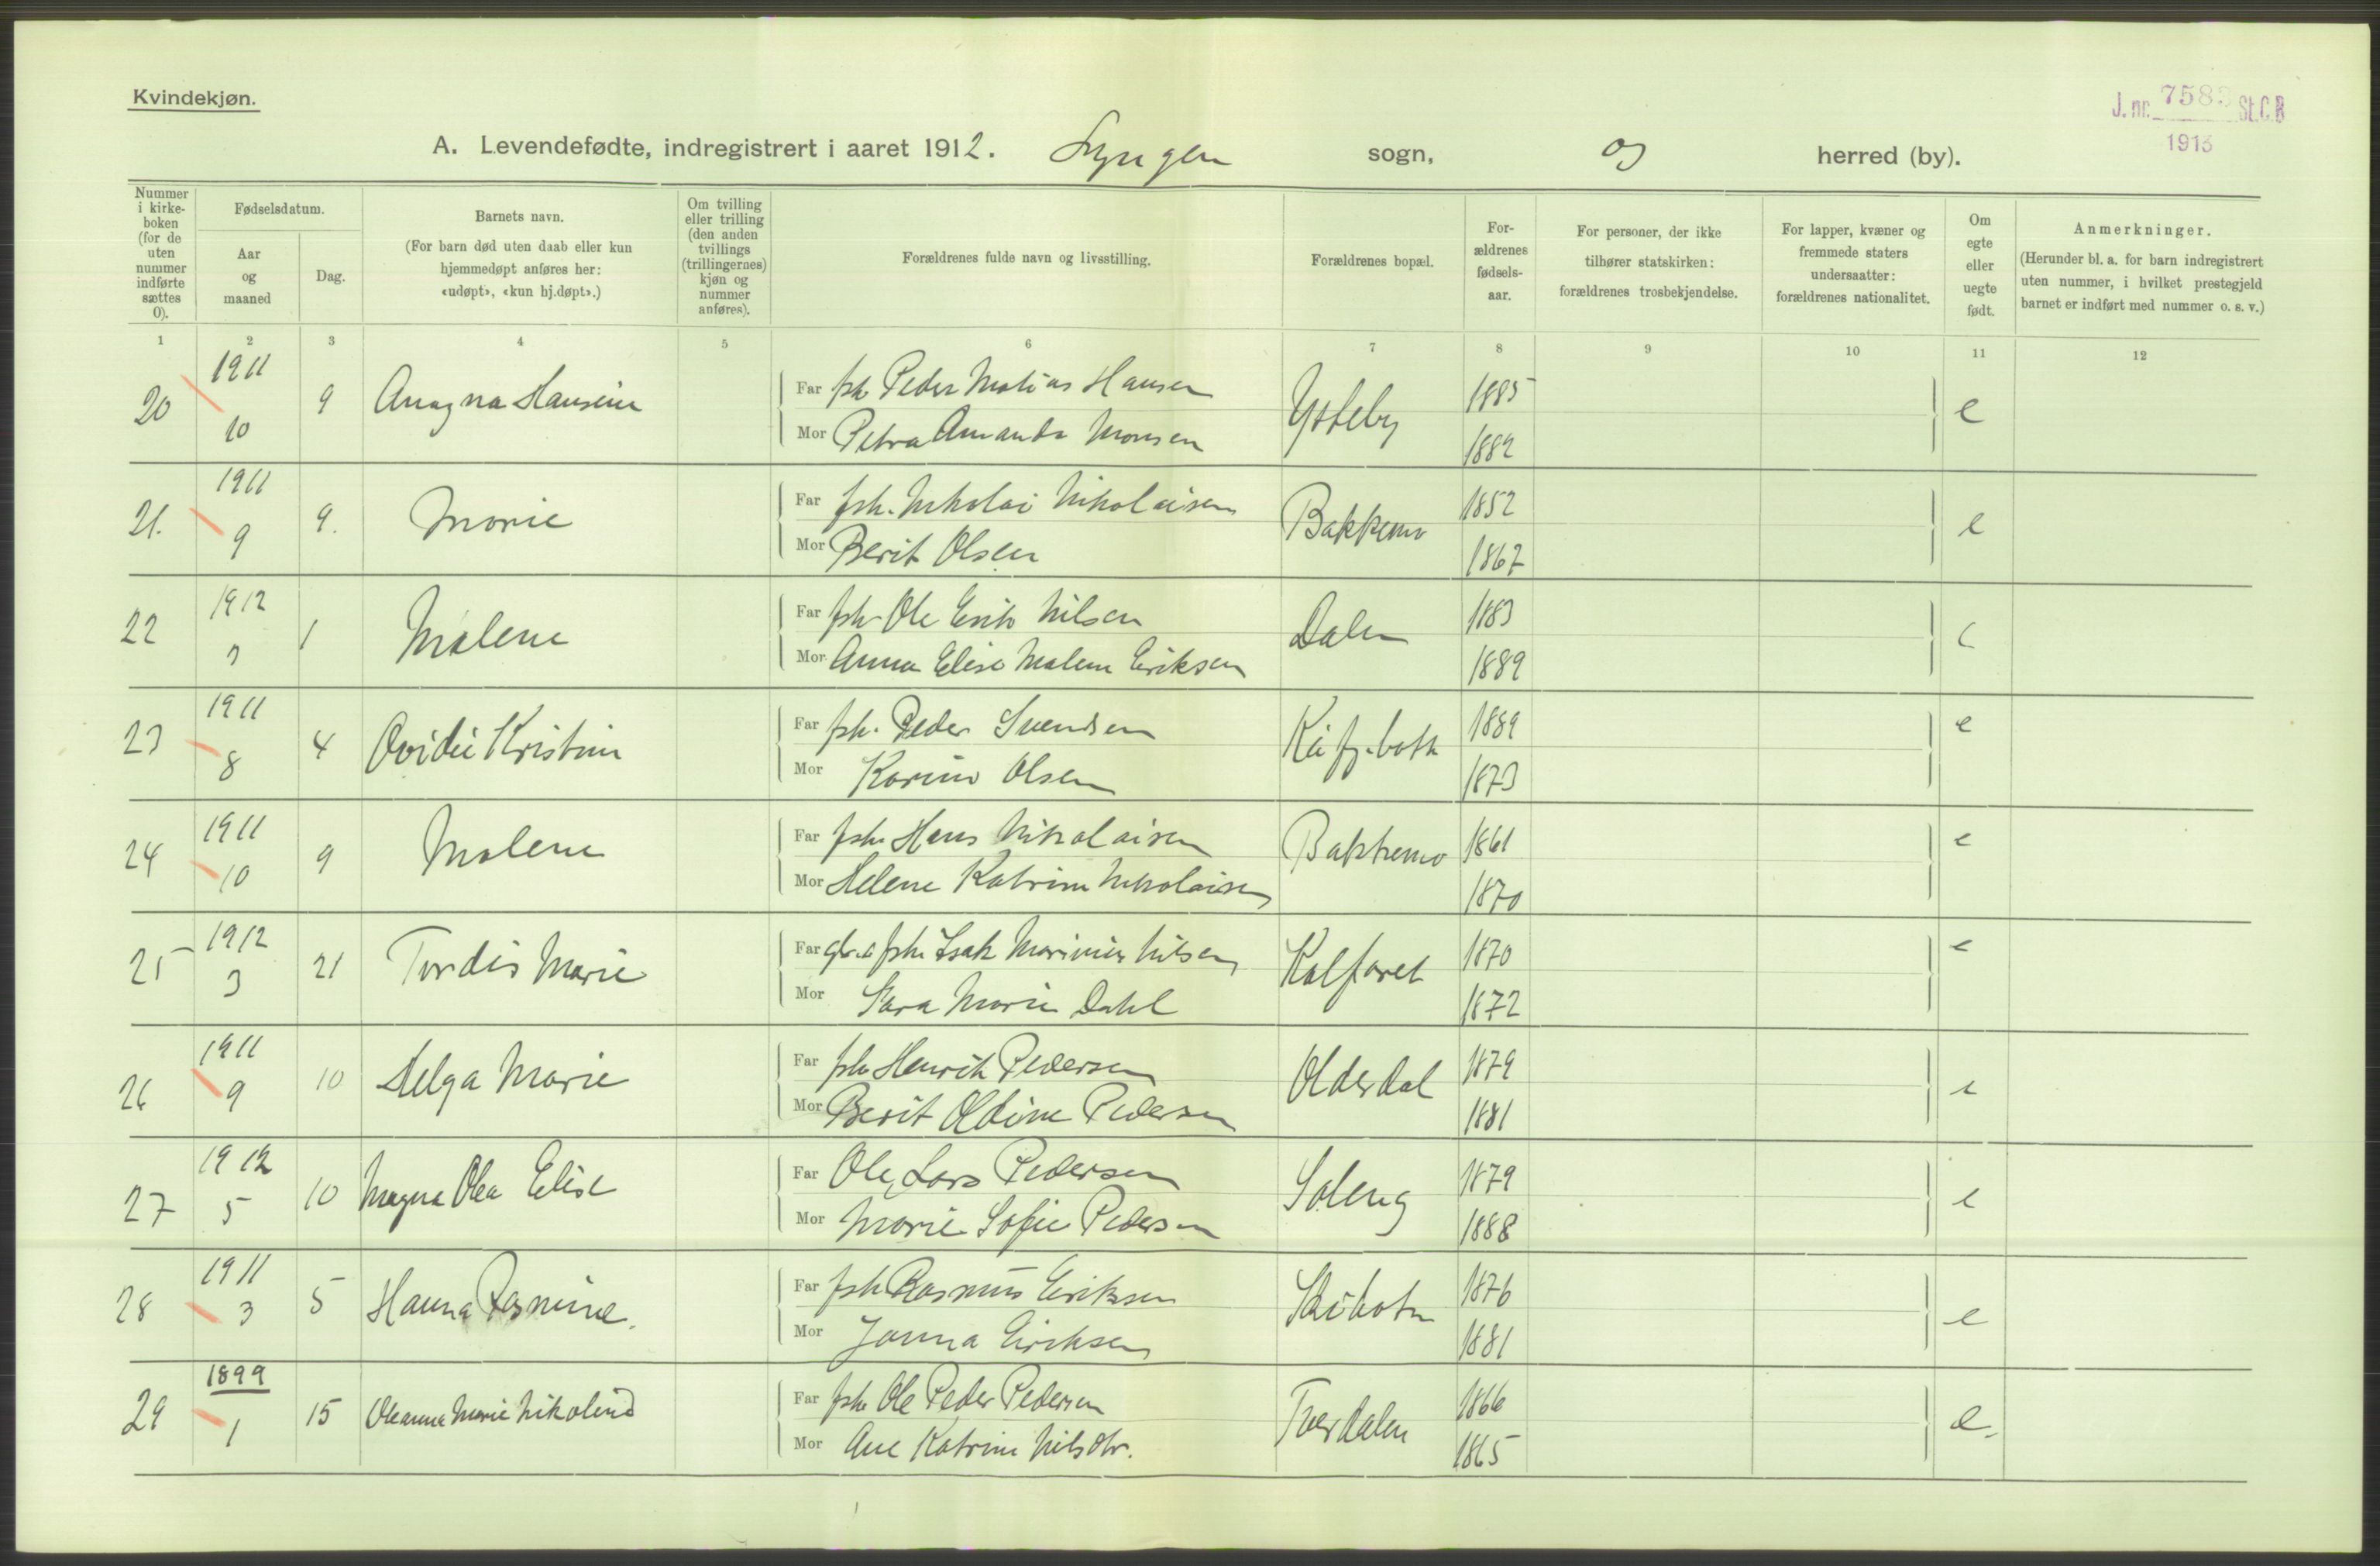 Kvindekjøn.
J. nr. 758 St.C.B
1913
A. Levendefødte, indregistrert i aaret 1912. Lyngen sogn, og herred (by).
Nummer i kirke-boken (for de uten nummer indførte sættes 0).
Fødselsdatum.
Aar og maaned
Dag.
Barnets navn.
(For barn død uten daab eller kun
hjemmedøpt anføres her:
«udøpt», «kun hj.døpt».)
Om tvilling
eller trilling
(den anden
tvillings
(trillingernes)
kjøn og
nummer
anføres).
Forældrenes fulde navn og livsstilling.
Forældrenes bopæl.
For-
ældrenes
fødsels-
aar.
For personer, der ikke
tilhører statskirken:
forældrenes trosbekjendelse.
For lapper, kvæner og
fremmede staters
undersaatter:
forældrenes nationalitet.
Om
egte
eller
uegte
født.
Anmerkninger.
(Herunder bl. a. for barn indregistrert
uten nummer, i hvilket prestegjeld
barnet er indført med nummer o. s. v.)
1 2 3 4 5 6 7 8 9 10 11 12
20 1911 10 9 Hansine Far fsk Peder Matias Hansen 1885 e
Mor Petra Amanda Monsen 1882
21. 1911 9 9. Marie Far fsk. Nikolai Nikolaisen Bakkemo 1852 e
Mor Berit Olsen 1867
22 1912 3 1 Malene Far fsk Ole Erik Nilsen Dalen 1883 e
Mor Anna Elise Malene Eriksen 1889
23 1911 8 4 Ovidie Kristine Far fsk. Peder Svendsen Kåfj.botn 1889 e
Mor Karine Olsen 1873
24 1911 10 9 Malene Far fsk Hans Nikolaisen Bakkemo 1861 e
Mor Helene Katrine Nikolaisen 1870
25 1912 3 21 Tordis Marie Far fsk Isak Marinius Nilsen Kalfaret 1870 e
Mor Sara Marie Dahl 1872
26 1911 9 10 Helga Marie Far fsk Henrik Pedersen Olderdal 1879 e
Mor Berit Oldine Pedersen 1881
27 1912 5 10 Magna Olea Elise Far Ole Lars Pedersen Soleng 1879 e
Mor Marie Sofie Pedersen 1888
28 1911 3 5 Hanna Rasmine. Far fsk Rasmus Eriksen Skibotn 1876 e
Mor Janna Eriksen 1881
29 1899 1 15 Oleanna Marie Nikoline Far fsk Ole Peder Pedersen Tverdalen 1866 e.
Mor Ane Katrine Nilsdtr. 1865